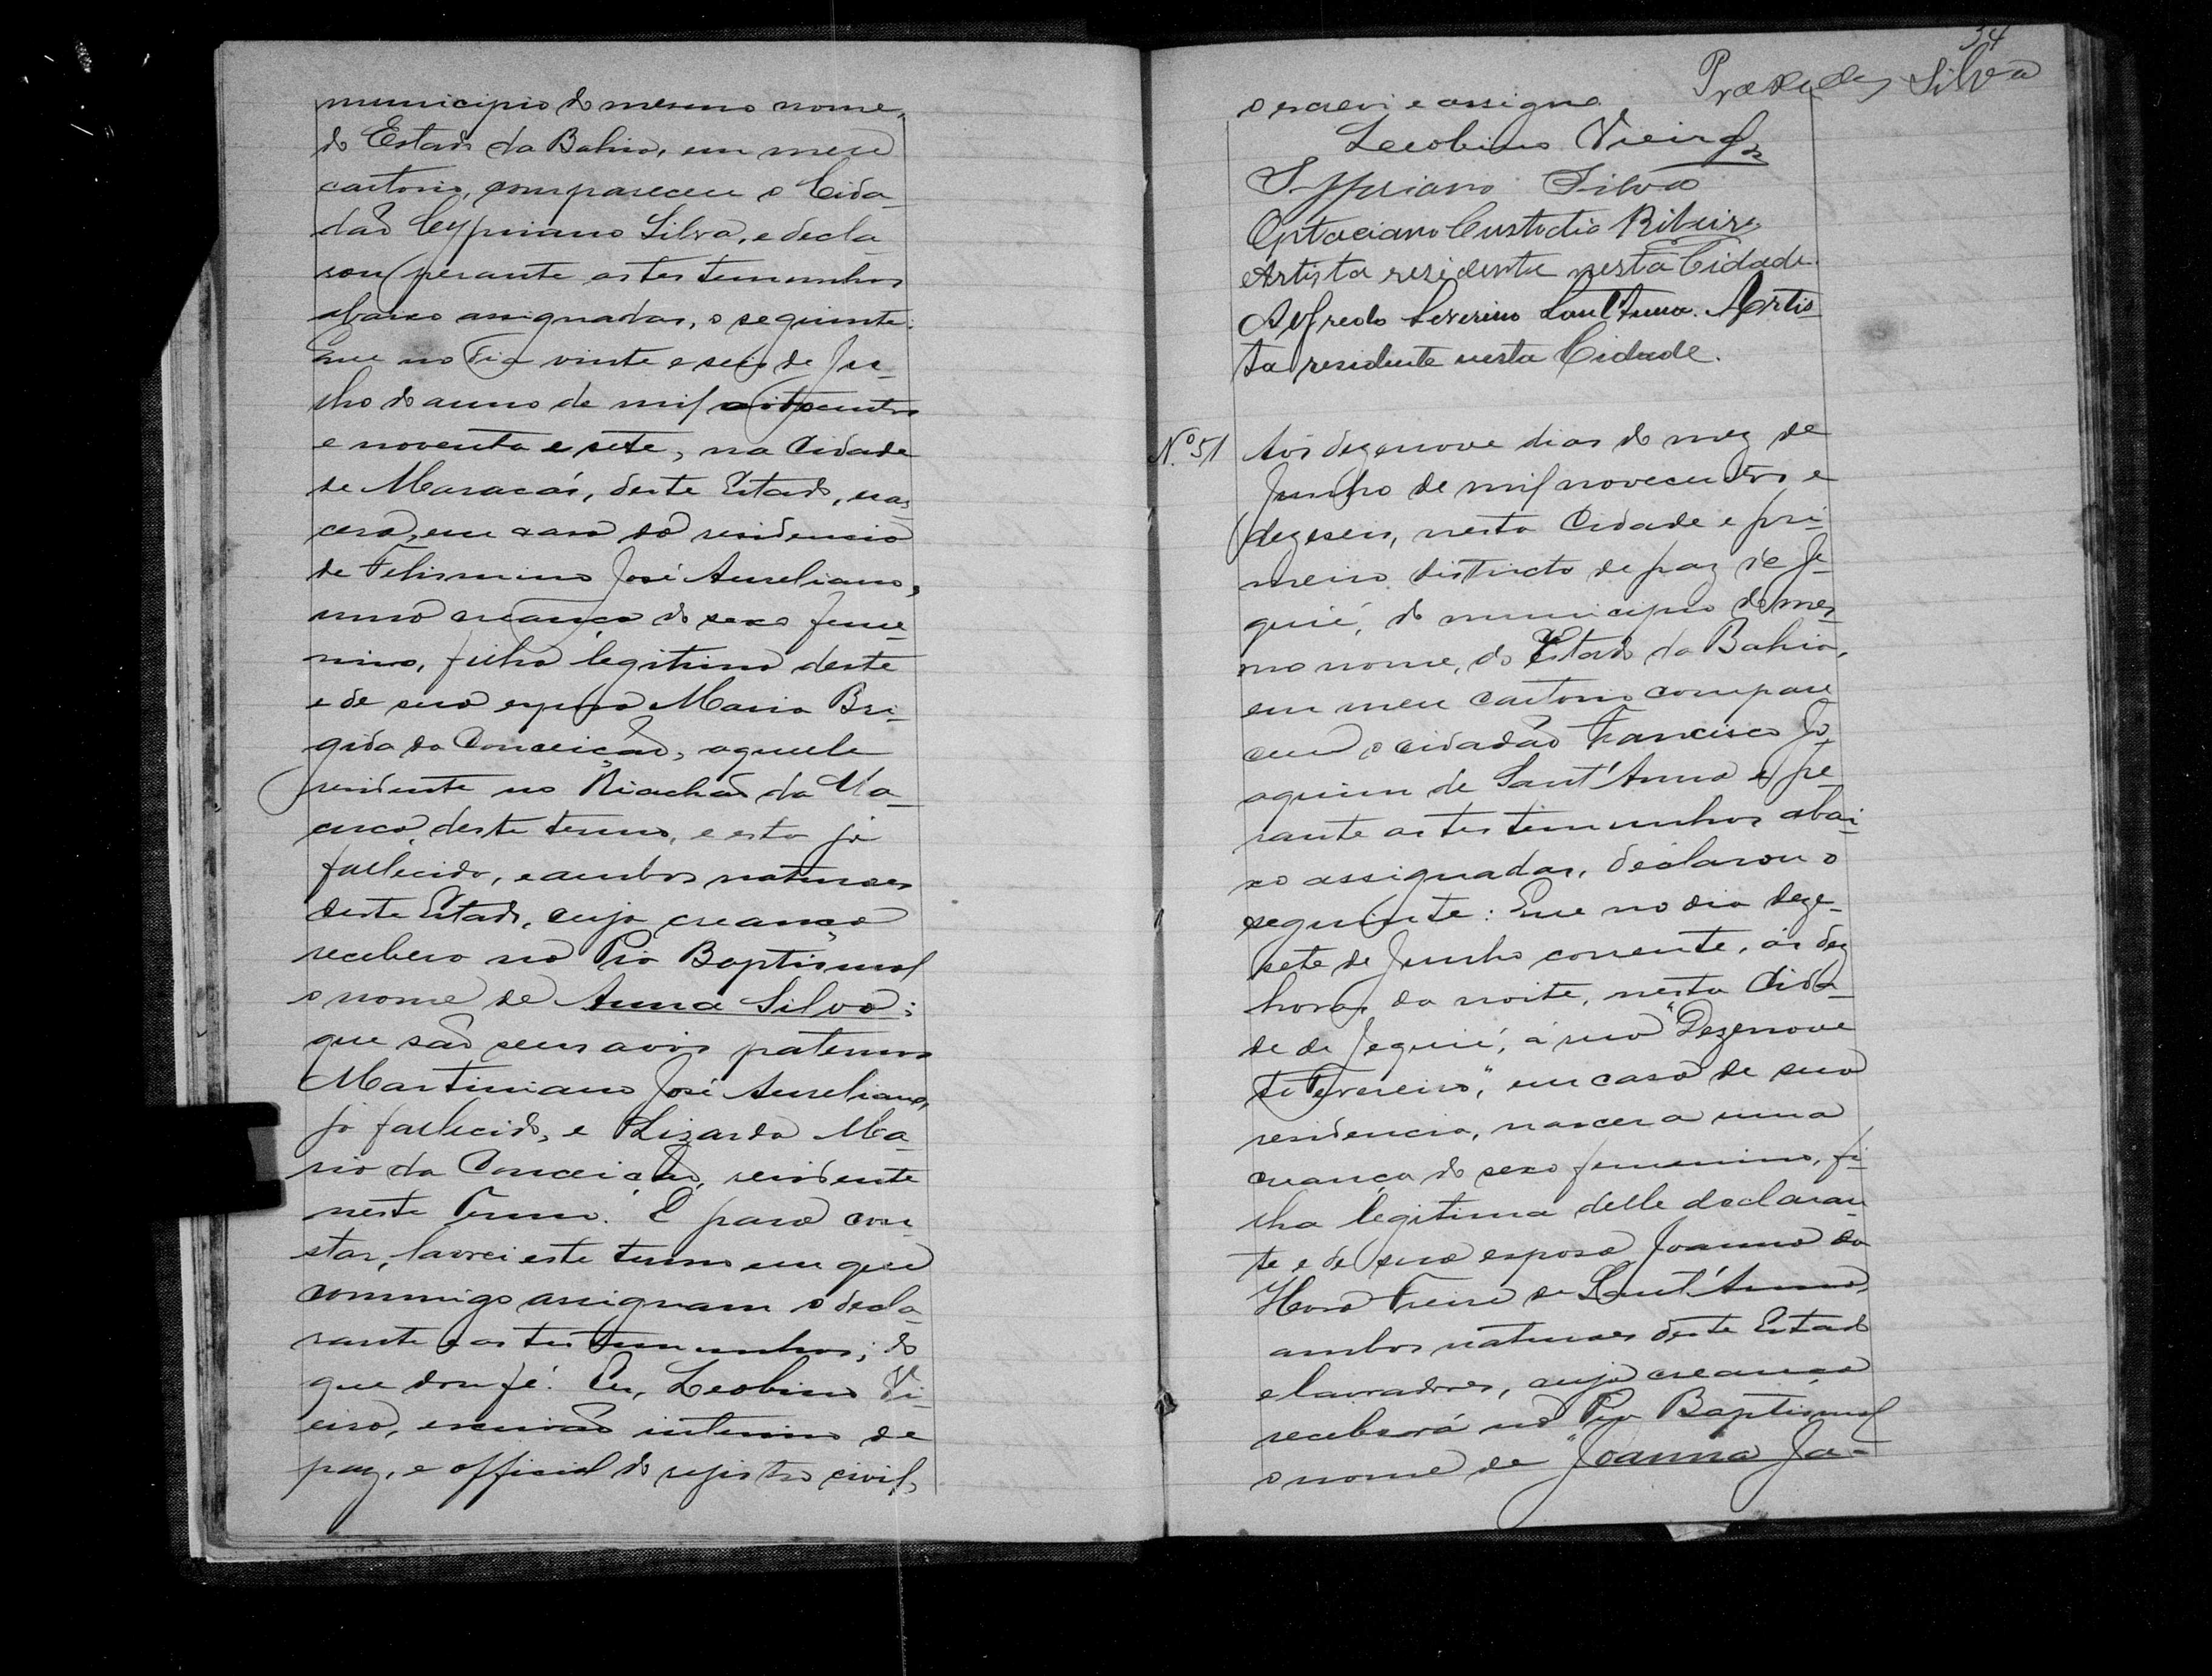 municipio do mesmo nome,
do Estado da Bahia, em meu
cartorio, compareceu o Cida-
dão Cypriano Silva, e decla-
rou perante as testemunhas
abaixo assignadas, o seguinte:
Que no dia vinte e seis de Ju-
lho do anno de mil oitocentos
e noventa e sete, na Cidade
de Maracás, deste Estado, nas-
cera, em casa da residencia
de Felismino José Aureliano,
uma creança do sexo feme-
nino, filha legitima deste
e de sua esposa Maria Bri-
gida da Conceição, aquelle
residente no Riachão da
deste termo, e esta já
fallecida, e ambos naturaes
deste Estado, cuja creança
recebera na Pia Baptismal
o nome de Anna Silva:
que são seus avós paternos
Martiniano José Aureliano,
já fallecido, e Lizarda Ma-
ria da Conceição, residente
neste Termo. E para con-
star, lavrei este termo em que
commigo assignam o decla-
rante e as testemunhas; do
que dou fé. Eu, Leobino Vi-
eira, escrivão interino de
paz, e official do registro civil,
34
Praxedes Silva
o escrevi e assigno.
Leobino Vieira
Sypriano Silva
Optaciano Custodio Ribeiro
Artista residente nesta Cidade.
Alfredo Severino Sant'Anna. Artis-
ta residente nesta Cidade.
Nº 51 Aos dezenove dias do mez de
Junho de mil novecentos e
dezeseis, nesta Cidade e pri-
meiro districto de paz de Je-
quié, do municipio do mes-
mo nome, do Estado da Bahia,
em meu cartorio compare-
ceu o cidadão Francisco Jo-
aquim de Sant'Anna e pe-
rante as testemunhas abai-
xo assignadas, declarou o
seguinte: Que no dia deze-
sete de Junho corrente, ás dez
horas da noite, nesta Cida-
de de Jequié, á rua "Dezenove
de Fevereiro", em casa de sua
residencia, nascera uma
creança do sexo femenino, fi-
lha legitima delle declaran-
te e de sua esposa Joanna da
Hora Freire de Sant'Anna,
ambos naturaes deste Estado
e lavradores, cuja creança
receberá na Pia Baptismal
o nome de "Joanna Ja-